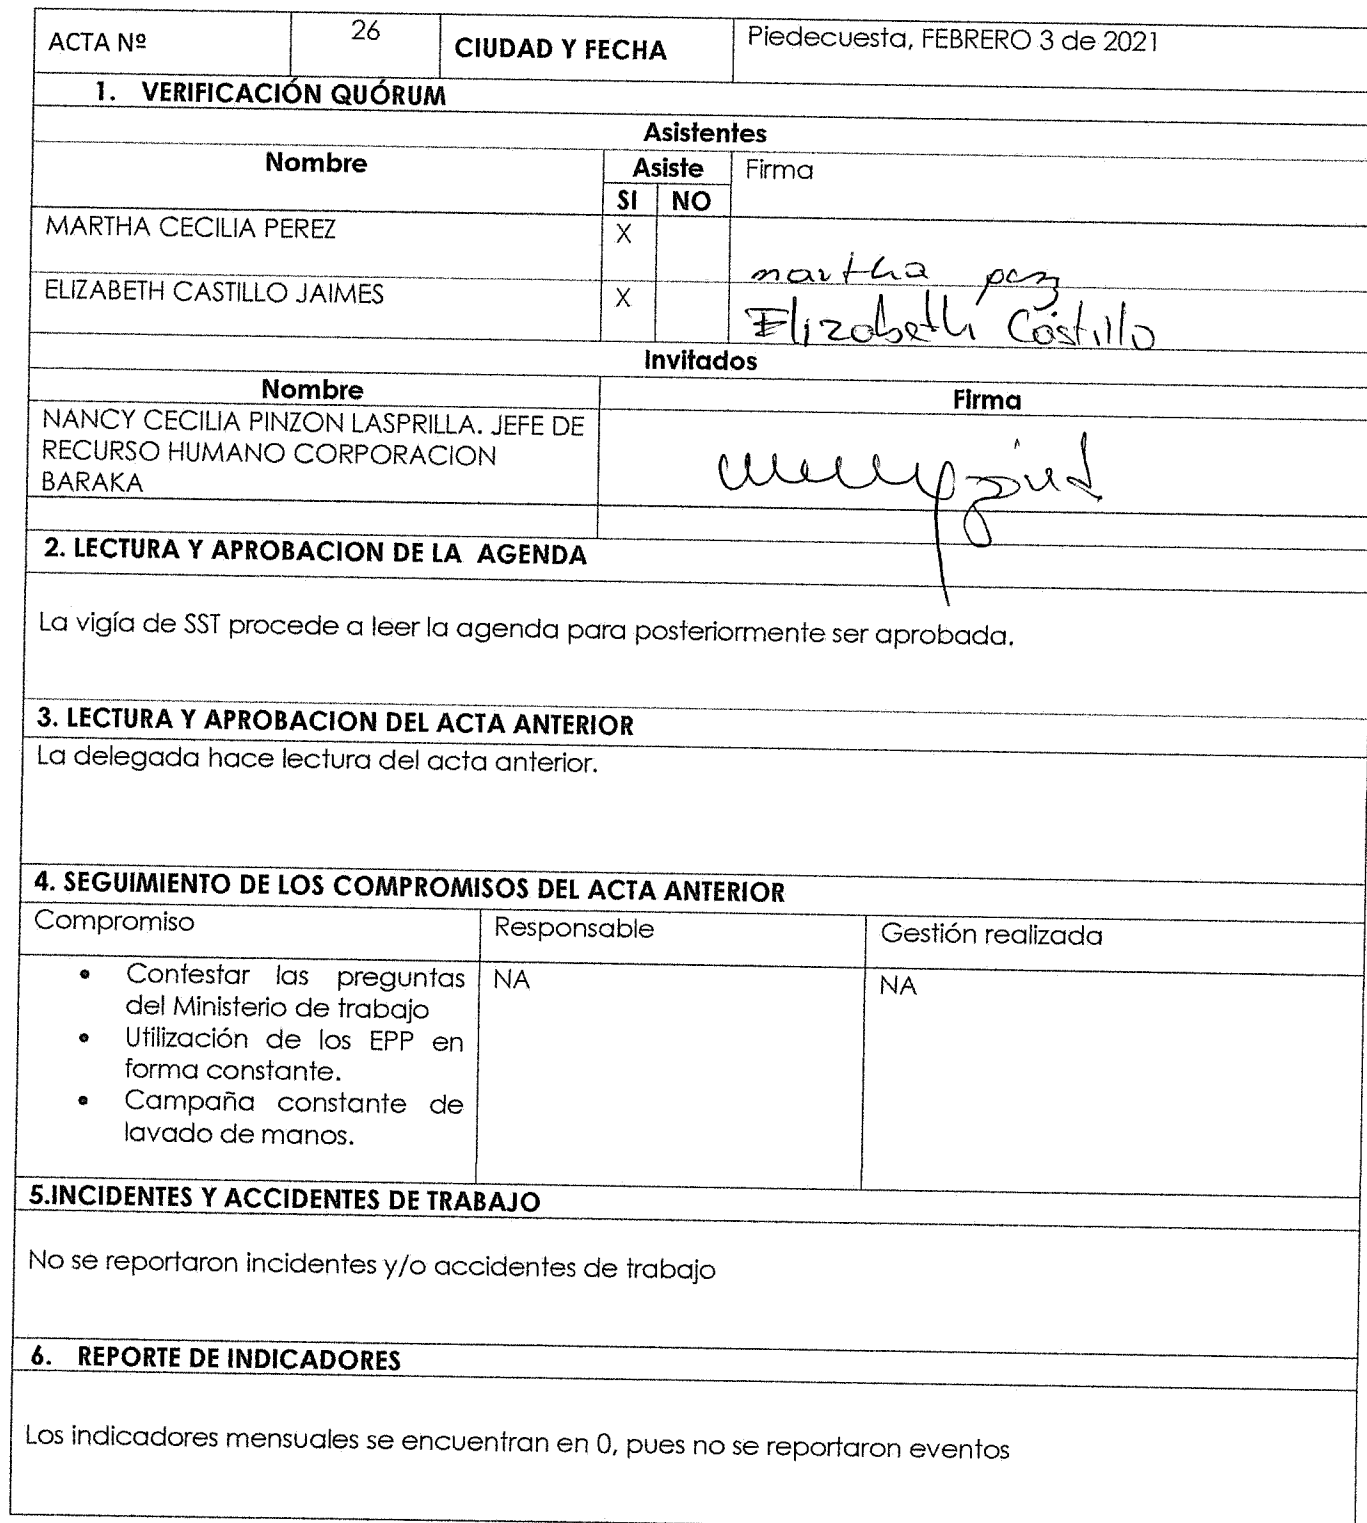 ACTA Nº 26 CIUDAD Y FECHA Piedecuesta, FEBRERO 3 de 2021
1. VERIFICACIÓN QUÓRUM
Asistentes
Nombre Asiste Firma
SI NO
MARTHA CECILIA PEREZ X
martha
ELIZABETH CASTILLO JAIMES X Elizabeth Castillo
Invitados
Nombre Firma
NANCY CECILIA PINZON LASPRILLA. JEFE DE
RECURSO HUMANO CORPORACION
BARAKA
2. LECTURA Y APROBACION DE LA AGENDA
La vigía de SST procede a leer la agenda para posteriormente ser aprobada.
3. LECTURA Y APROBACION DEL ACTA ANTERIOR
La delegada hace lectura del acta anterior.
4. SEGUIMIENTO DE LOS COMPROMISOS DEL ACTA ANTERIOR
Compromiso Responsable Gestión realizada
• Contestar las preguntas NA NA
del Ministerio de trabajo
• Utilización de los EPP en
forma constante.
• Campaña constante de
lavado de manos.
5.INCIDENTES Y ACCIDENTES DE TRABAJO
No se reportaron incidentes y/o accidentes de trabajo
6. REPORTE DE INDICADORES
Los indicadores mensuales se encuentran en 0, pues no se reportaron eventos